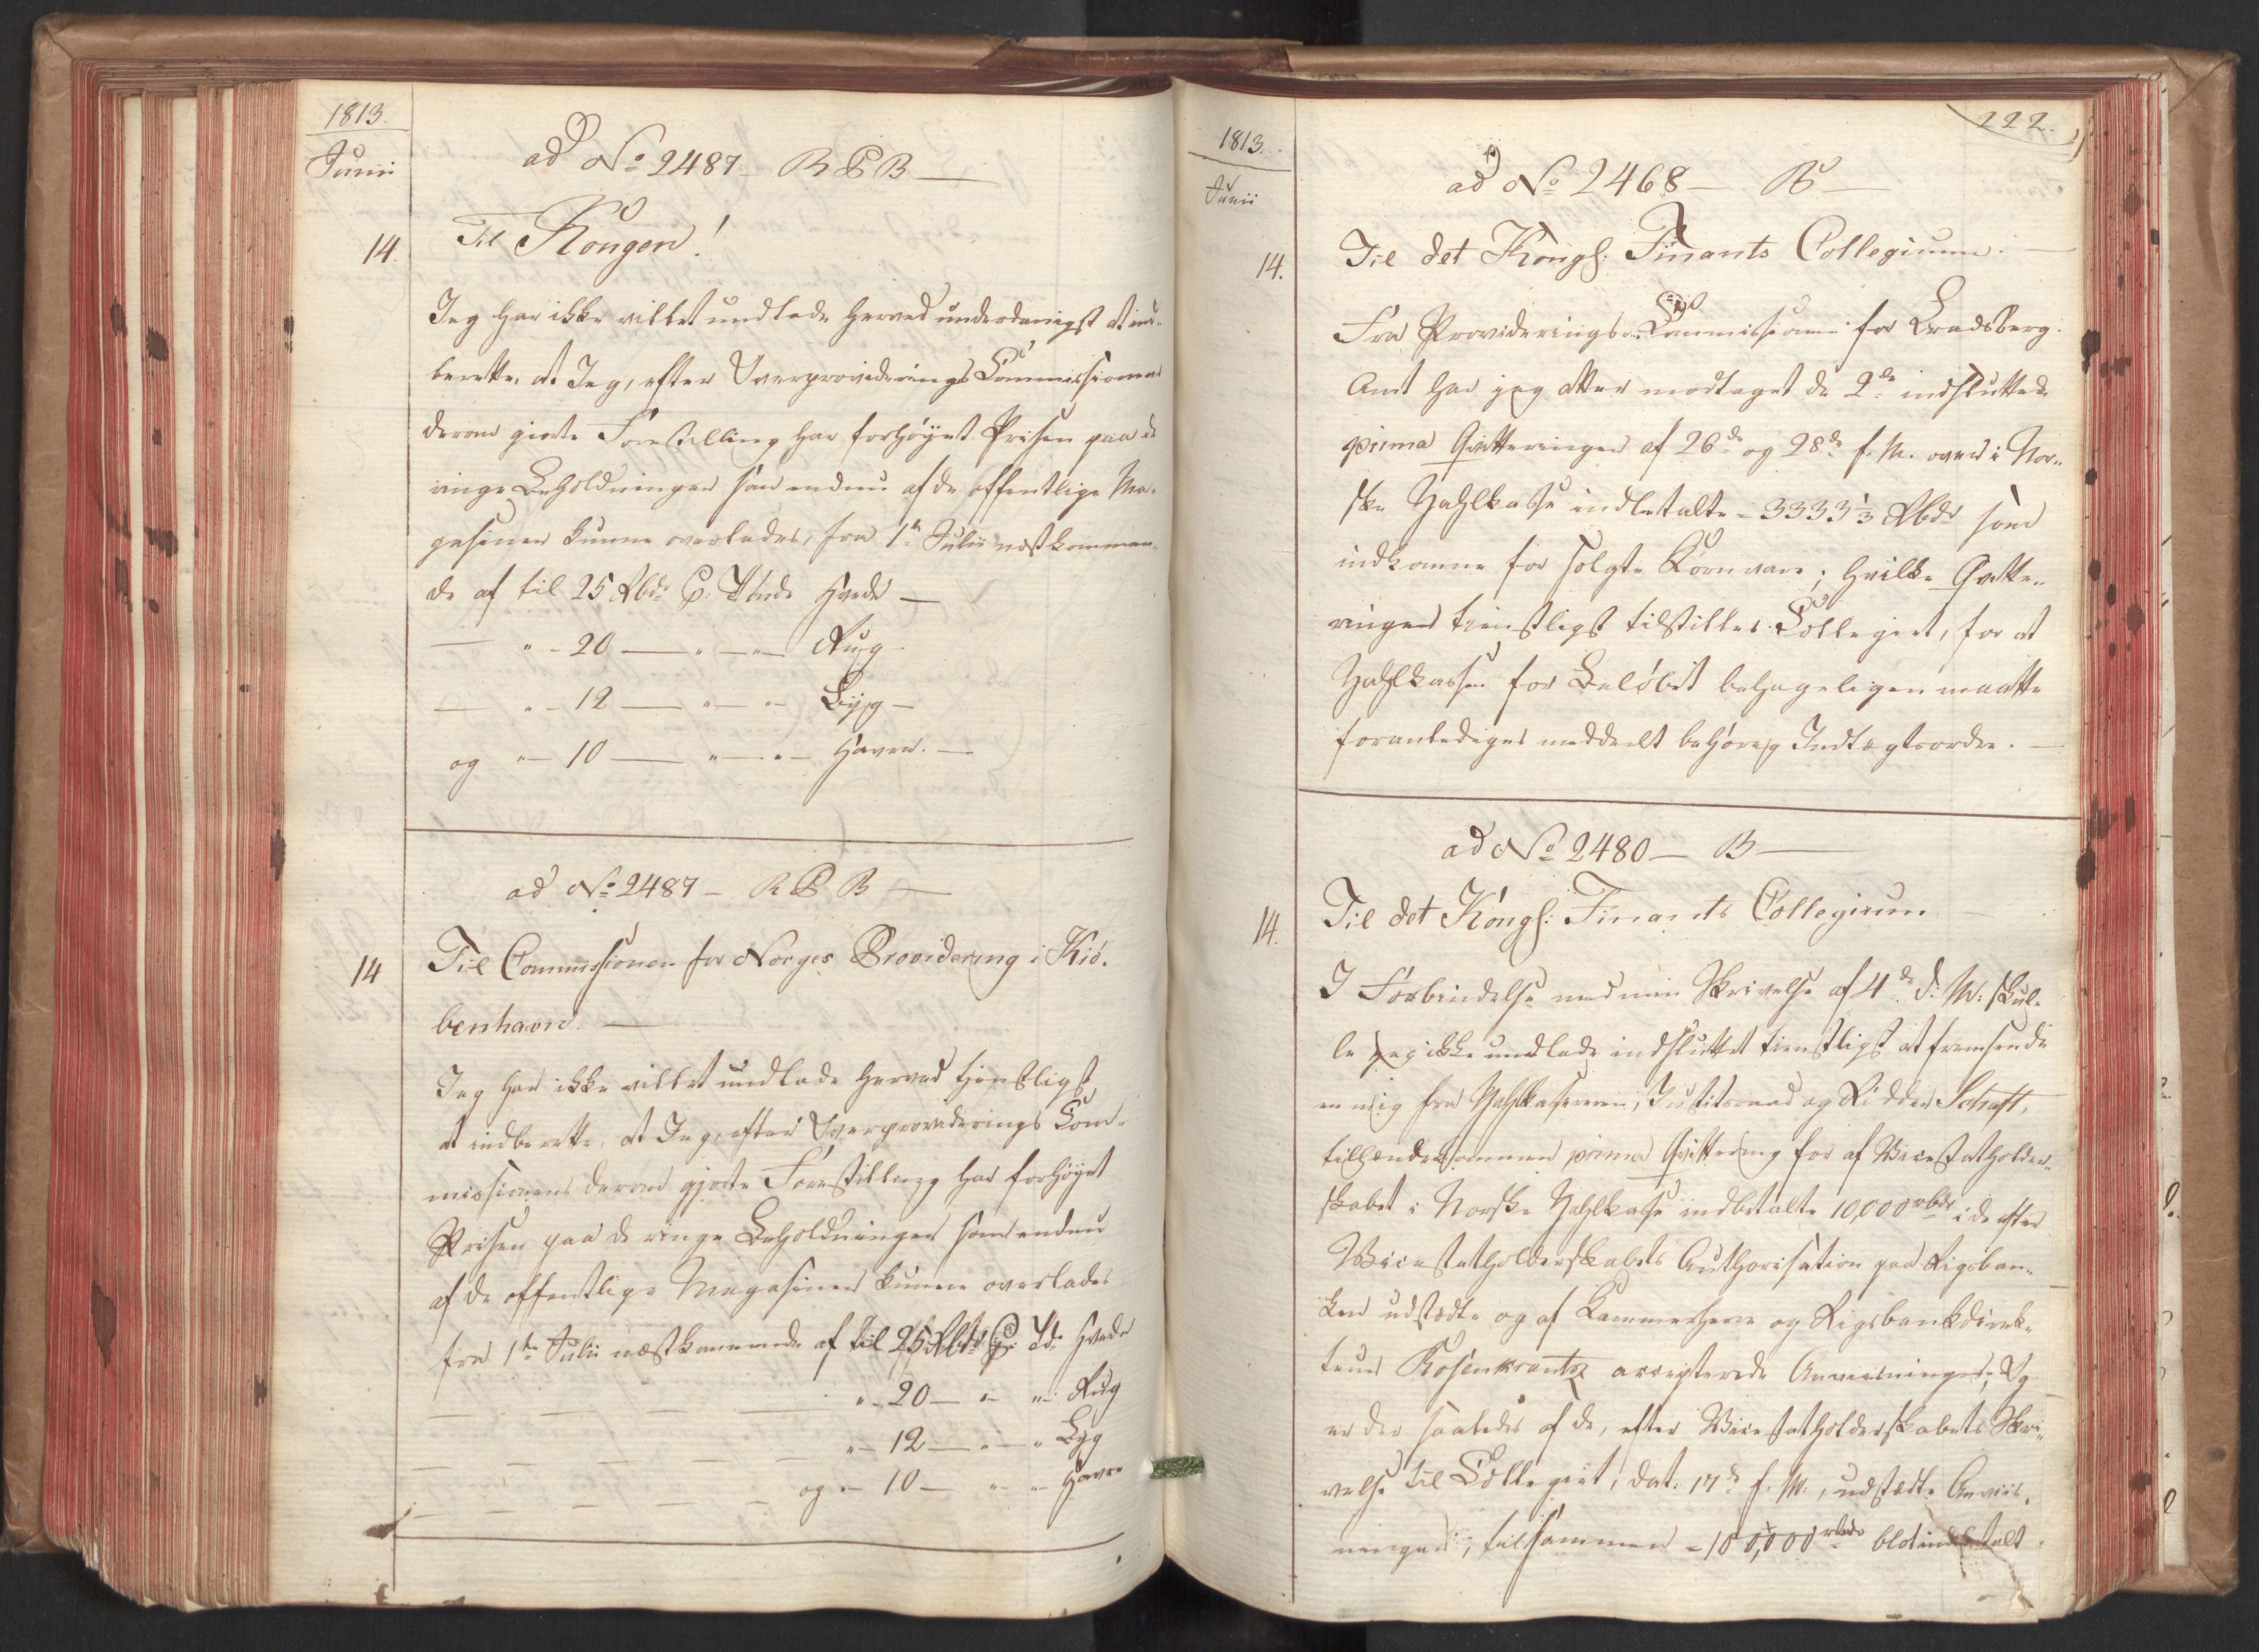 1813.
Junii
ad No 2487 - R P B
14.
Til Kongen!
Jeg har ikke villet undlade herved underdanigst at ind-
berette, at Jeg, efter Overproviderings Commissionens
derom giorte Forestilling har forhöyet Prisen paa de
ringe Beholdninger som endnu af de offentlige Ma-
gasiner kunne overlades, fra 1te Julii næstkommen-
de af til 25 Rbdr P: Tönde Hvede —
— " - 20 — " — " — Rug -
— " - 12 — " — " — Byg —
og " — 10 — " — " — Havre. —
ad No 2487 - R P B —
14
Til Commissionen for Norges Providering i Kiö-
benhavn. —
Jeg har ikke villet undlade herved tjenstligst
at indberette, at Jeg, efter Overproviderings Com-
missionens derom gjorte Forestilling har forhöyet
Prisen paa de ringe Beholdninger som endnu
af de offentlige Magasiner kunne overlades
fra 1te Julii næstkommende af til 25 Rbdr P: Td: Hvede
" - 20 — " — " — Rug
" — 12 — " — " Byg
og " — 10 — " — " — Havre
1813.
Junii
222.
ad No 2468 — B —
14.
Til det Kongl: Finants Collegium. —
Fra Providerings-Commissionen for Bradsberg
Amt har jeg atter modtaget de 2de indsluttede
prima Qvitteringer af 26de og 28de f. M. over i Nor-
ske Zahlkasse indbetalte - 3333 1/3 Rbdr som
indkomne for solgte Kornvare; hvilke Qvitte-
ringer tienstligst tilstilles Collegiet, for at
Zahlkassen for Belöbet behageligen maatte
foranlediges meddeelt behörig Indtægtsordre. —
ad No 2480 — B —
14.
Til det Kongl: Finants Collegium
I Forbindelse med min Skrivelse af 4de d: M: skul-
le jeg ikke undlade indsluttet tienstligst at fremsende
en mig fra Zahlkasereren, Justitsraad og Ridder Schaft,
tilhændekommen prima Qvittering for af Vicestatholder-
skabet i Norske Zahlkasse indbetalte 10,000 rbdr i de efter
Vicestatholderskabets Authorisation paa Rigsban-
ken udstædte og af Kammerherre og Rigsbankdirek-
teur Rosenkrantz accepterede Anviisninger; Og
er der saaledes af de, efter Vicestatholderskabets Skri-
velse til Collegiet, dat: 17de f. M., udstædte Anviis-
ninger, tilsammen - 100,000 rbdr blot indbetalt